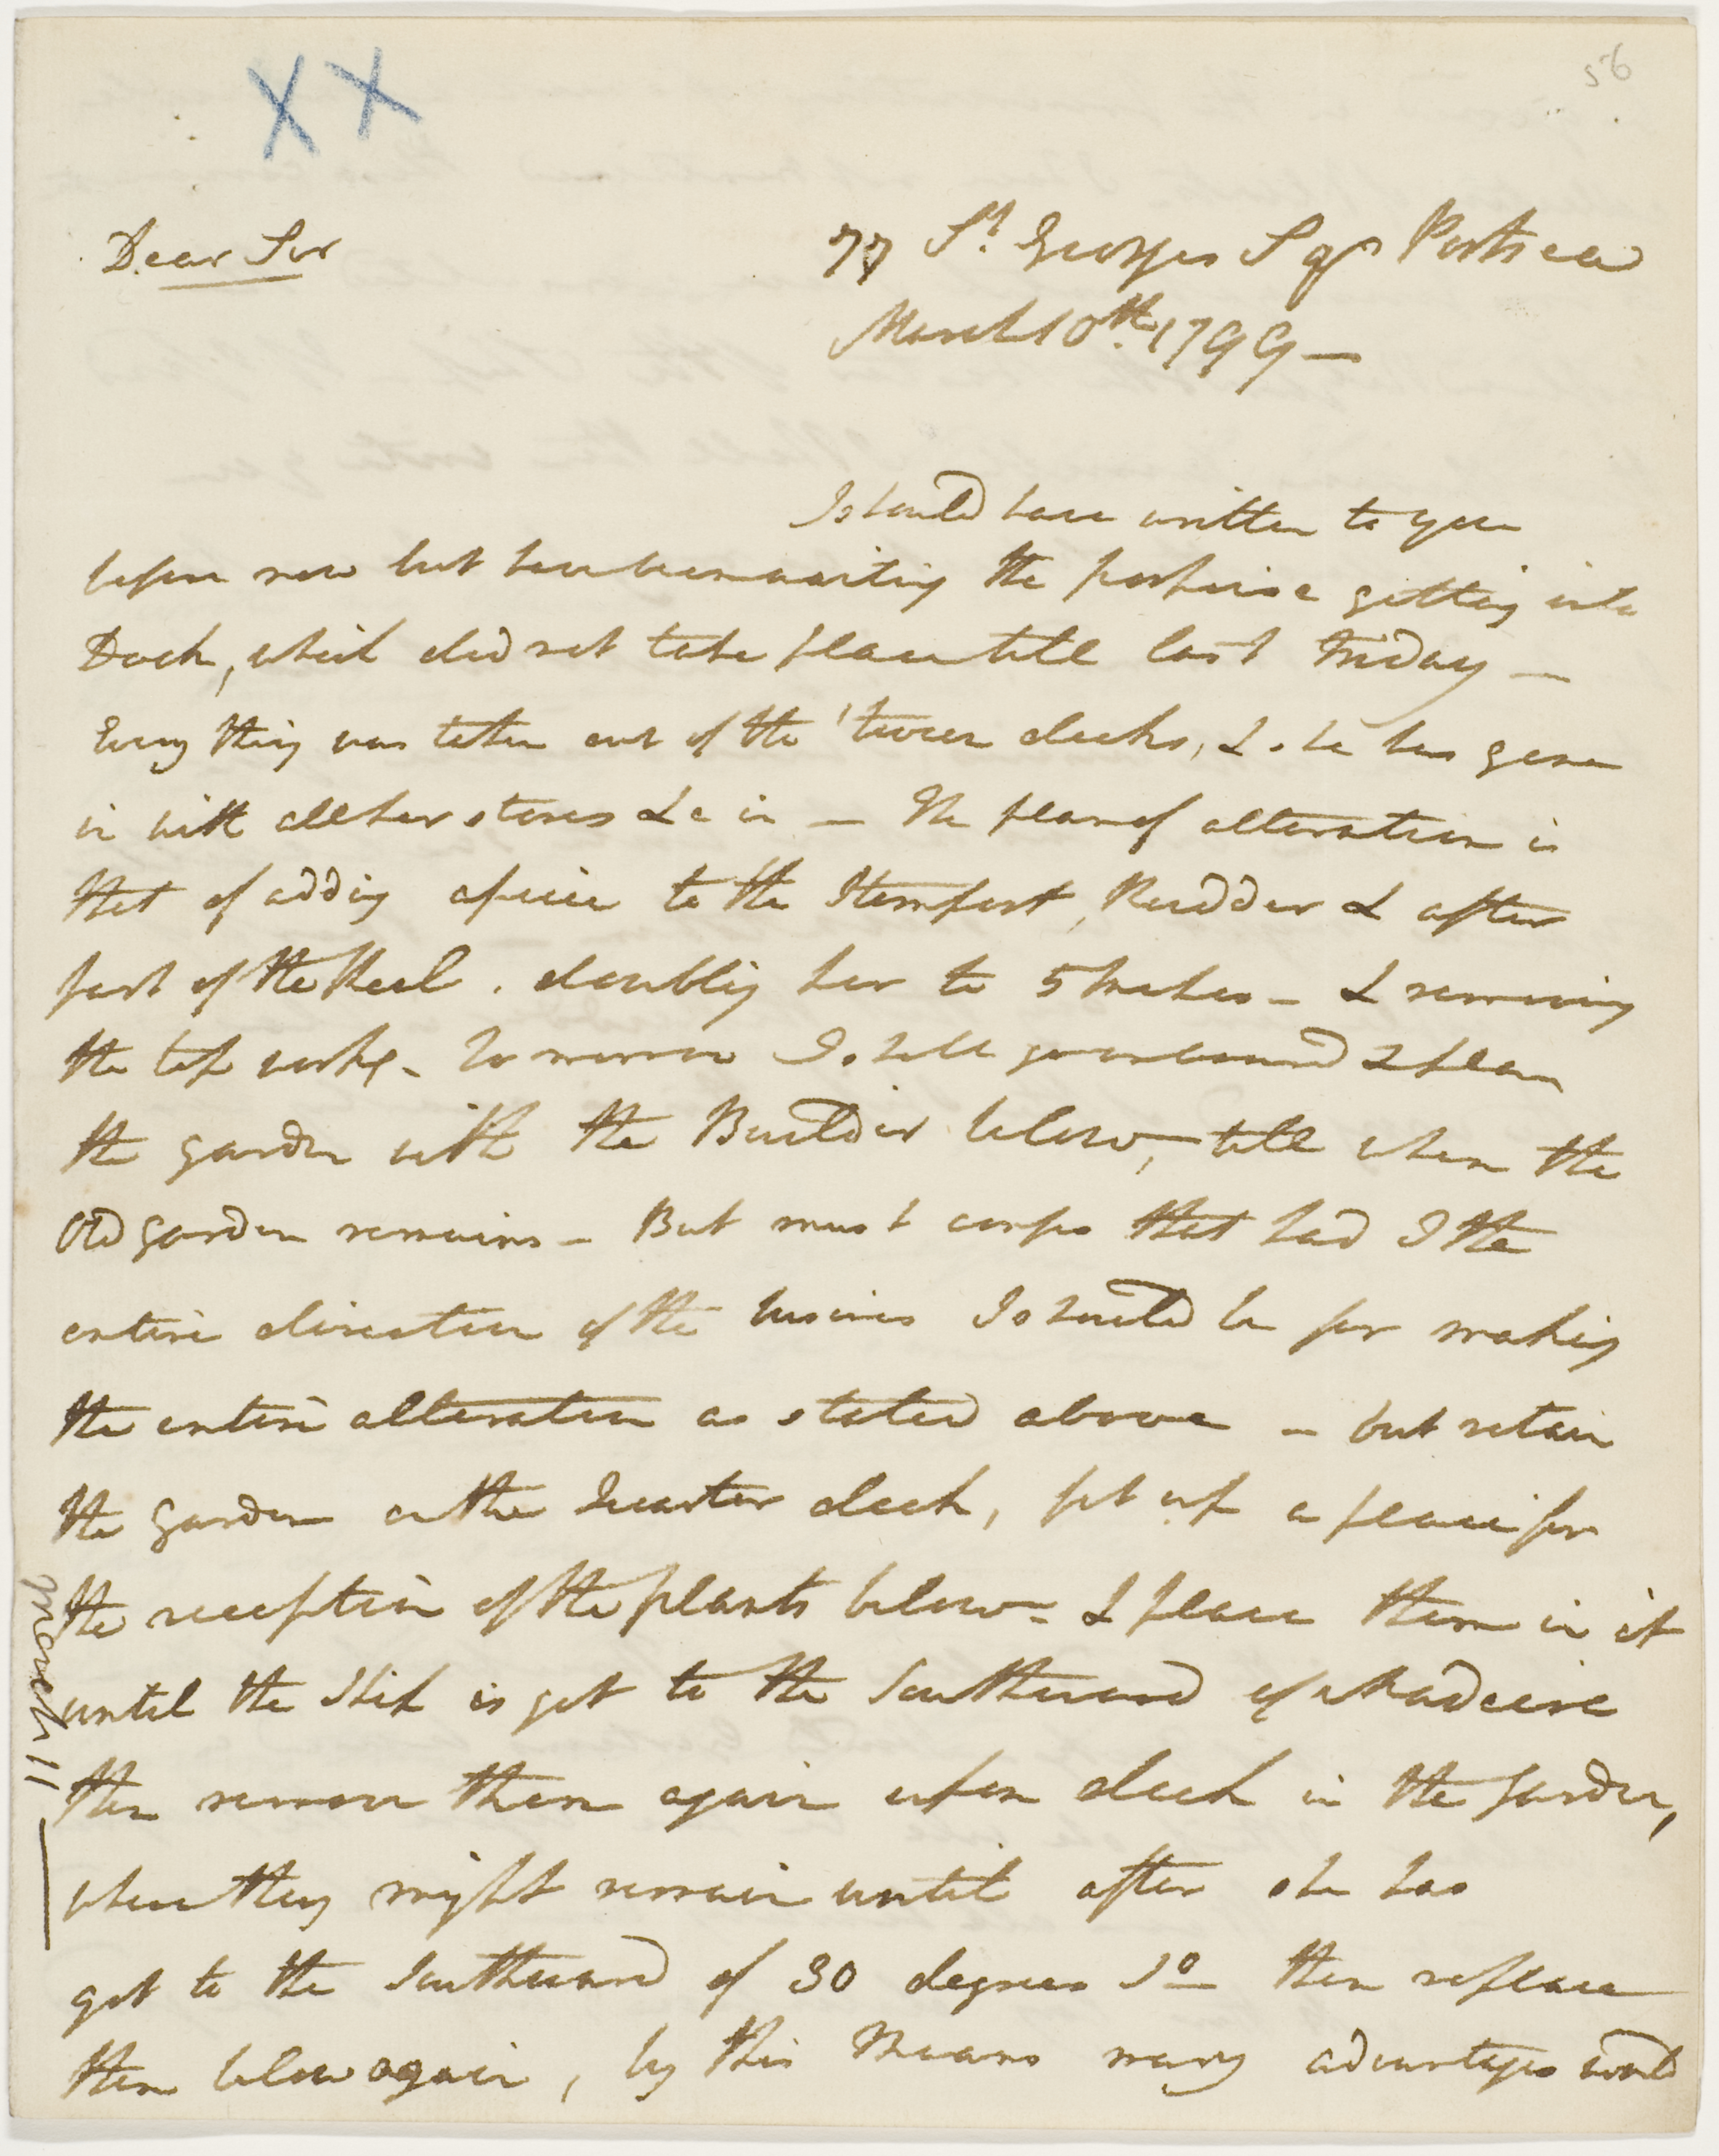 XX
56
Dear Sir
77 St. Georges Sqr Portsea
March 10th. 1799 —
I should have written to you
before now but have been waiting the porpoise getting into
Dock, which did not take place till last Friday —
Every thing was taken out of the 'tween decks, & she has gone
in with all her stores &c in — The plan of alteration is
that of adding a piece to the Sternpost, Rudder & after
part of the Keel. doubling her to 5 Strakes — & removing
the top works — To morrow I shall go on board & plan
the garden with the Builder below, — till when the
Old garden remains — But must confess that had I the
entire direction of the business I should be for making
the entire alteration as stated above — but retain
the garden on the Quarter deck, fit up a place for
the reception of the plants below — & place them in it
until the Ship is got to the Southward of Madeira
then remove them again upon deck in the garden,
where they might remain until after she has
got to the Southward of 30 degrees So — then replace
them below again, by this Means many advantages would
March 11